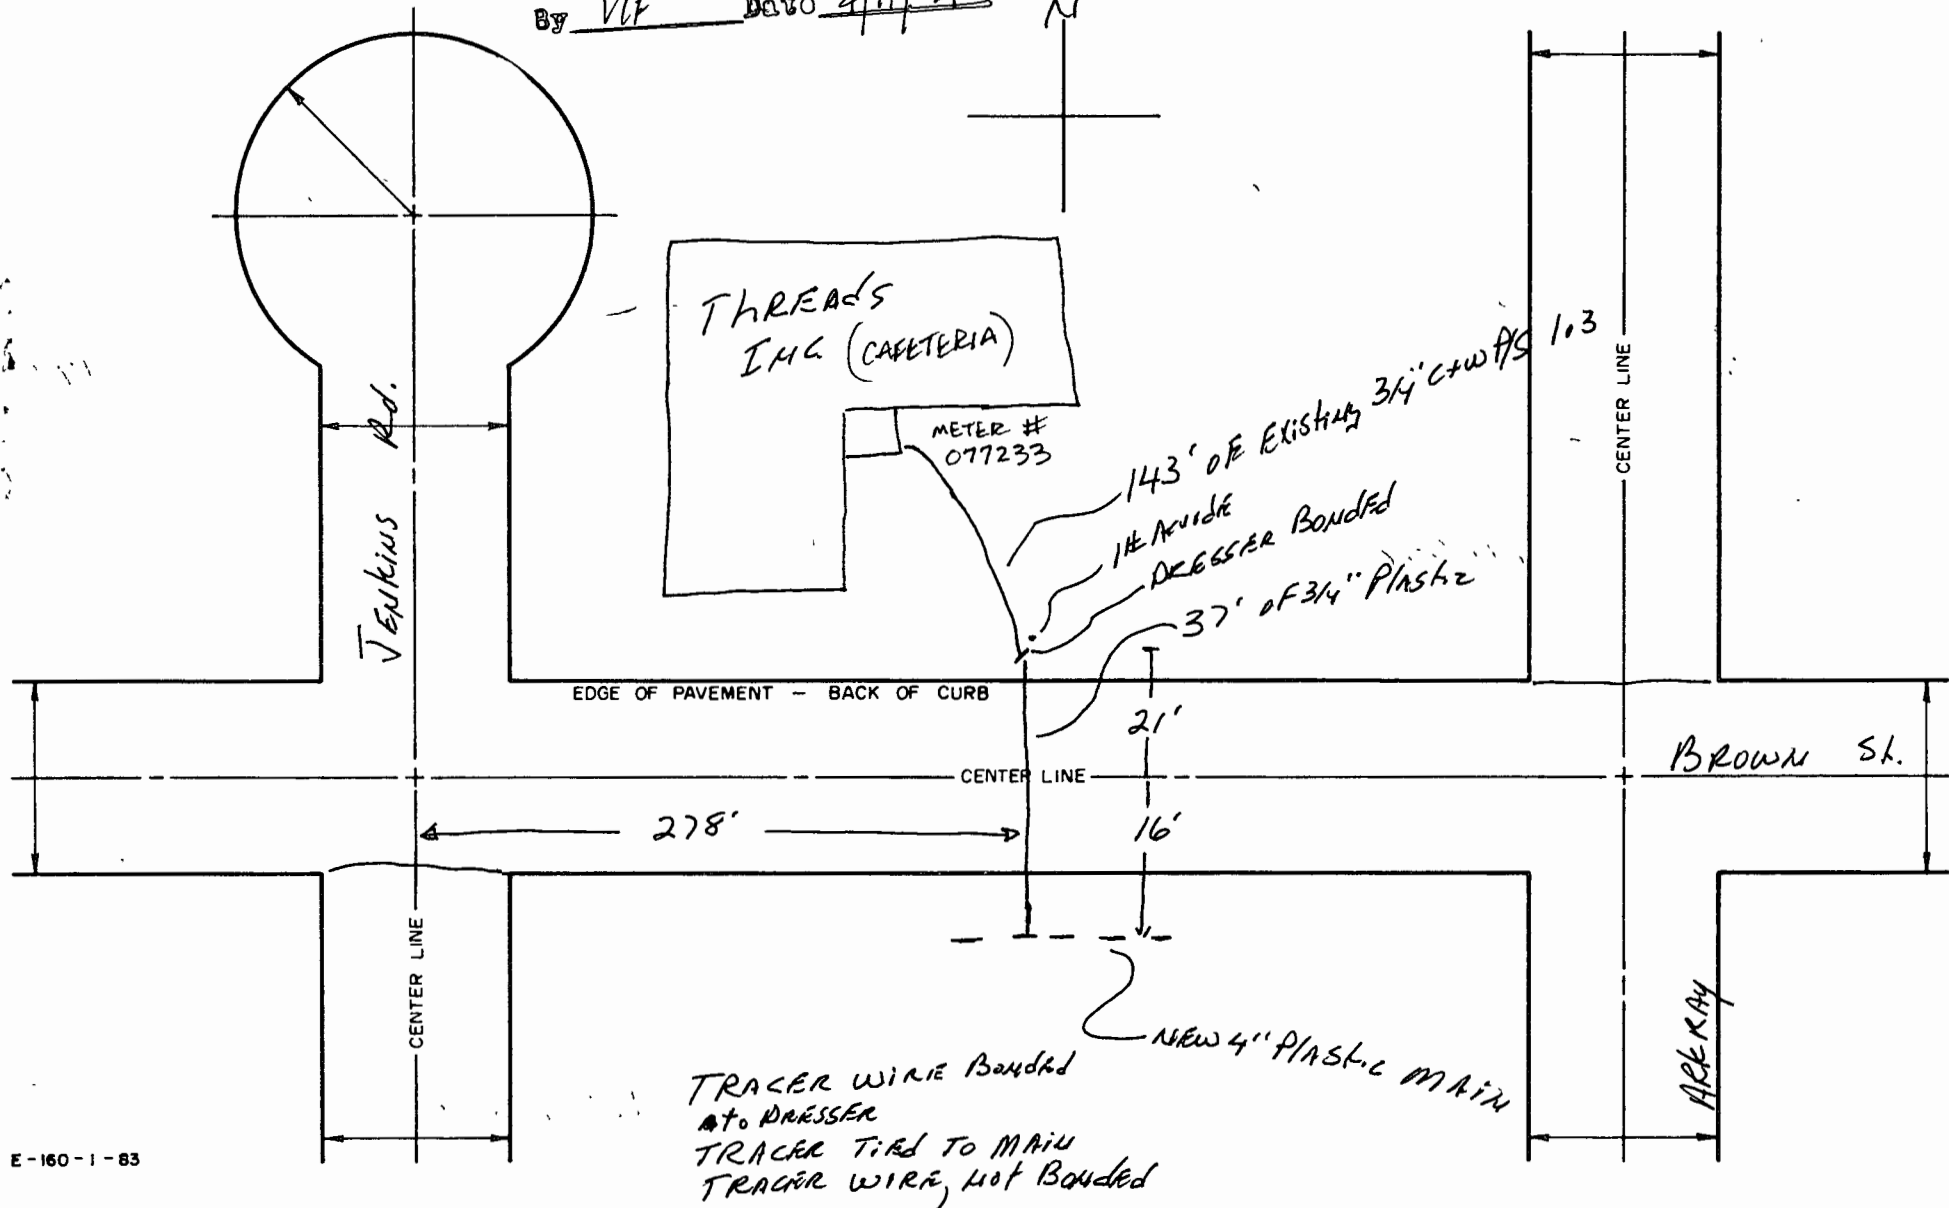 By Date
N
THREADS
INC. (CAFETERIA)
METER #
077233
143' OF Existing 3/4" C+W P/S 1.3
1# ANODE
DRESSER BONDED
37' OF 3/4" Plastic
JENKINS Rd.
EDGE OF PAVEMENT – BACK OF CURB
21'
CENTER LINE
CENTER LINE
BROWN St.
278'
16'
CENTER LINE
NEW 4" PlAStic MAIN
ARKRAY
TRACER WIRE Bonded
to DRESSER
TRACER TiEd TO MAIN
TRACER WIRE, Not Bonded
E-160-1-83